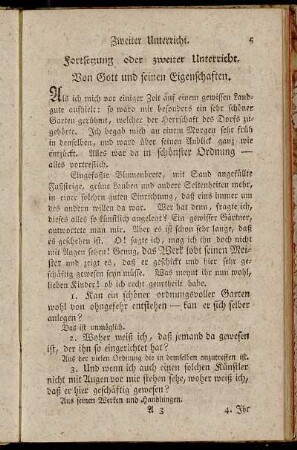 Zweiter Unterricht. 5
Fortsetzung oder zweiter Unterricht.
Von Gott und seinen Eigenschaften.
Als ich mich vor einiger Zeit auf einem gewissen Land-
gute aufhielt: so ward mir besonders ein sehr schöner
Garten gerühmt, welcher der Herrschaft des Dorfs zu-
gehörte. Ich begab mich an einem Morgen sehr früh
in denselben, und ward über seinen Anblick ganz wie
entzückt. Alles war da in schönster Ordnung —
alles vortreflich.
Eingefaßte Blumenbeete, mit Sand angefüllte
Fußsteige, grüne Lauben und andere Seltenheiten mehr,
in einer solchen guten Einrichtung, daß eines immer um
des andern willen da war. Wer hat denn, fragte ich,
dieses alles so künstlich angelegt? Ein gewisser Gärtner,
antwortete man mir. Aber es ist schon sehr lange, daß
es geschehen ist. O! sagte ich, mag ich ihn doch nicht
mit Augen sehen! Genug, das Werk lobt seinen Mei-
ster und zeigt es, daß er geschickt und hier sehr ge-
schäftig gewesen seyn müsse. Was meynt ihr nun wohl,
lieben Kinder! ob ich recht geurtheilt habe.
1. Kan ein schöner ordnungsvoller Garten
wohl von ohngefehr entstehen — kan er sich selber
anlegen?
Das ist unmöglich.
2. Woher weiß ich, daß jemand da gewesen
ist, der ihn so eingerichtet hat?
Aus der vielen Ordnung die in demselben anzutreffen ist.
3. Und wenn ich auch einen solchen Künstler
nicht mit Augen vor mir stehen sehe, woher weiß ich,
daß er hier geschäftig gewesen?
Aus seinen Werken und Handlungen.
A 3 4. Ihr